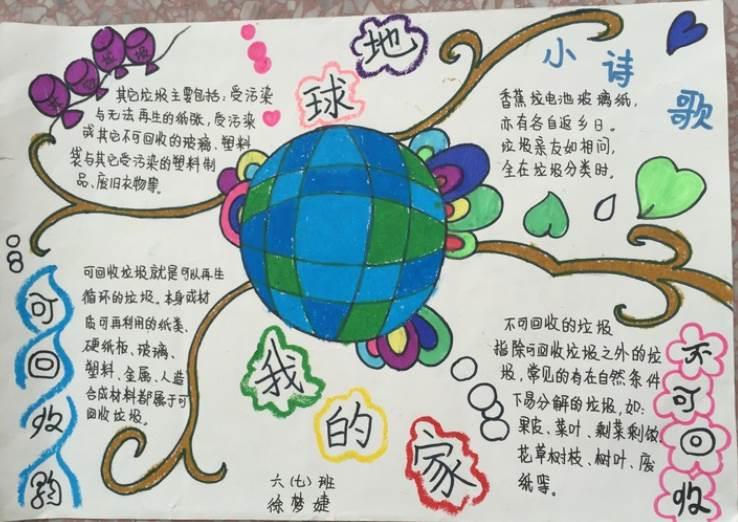 地
球
小诗歌
其它垃圾主要包括：受污染
与无法再生的纸张，受污染
或其它不可回收的玻璃、塑料
袋与其它受污染的塑料制
品、废旧衣物等。
香蕉垃电池玻璃纸，
亦有各自返乡日。
垃圾亲友如相问，
全在垃圾分类时。
可回收
可回收垃圾就是可以再生
循环的垃圾。本身或材
质可再利用的纸类、
硬纸板、玻璃、
塑料、金属、人造
合成材料都属于可
回收垃圾。
不可回收
不可回收的垃圾
指除可回收垃圾之外的垃
圾，常见的有在自然条件
下易分解的垃圾，如：
果皮、菜叶、剩菜剩饭、
花草树枝、树叶、废
纸等。
我
的
家
六（七）班
徐梦婕